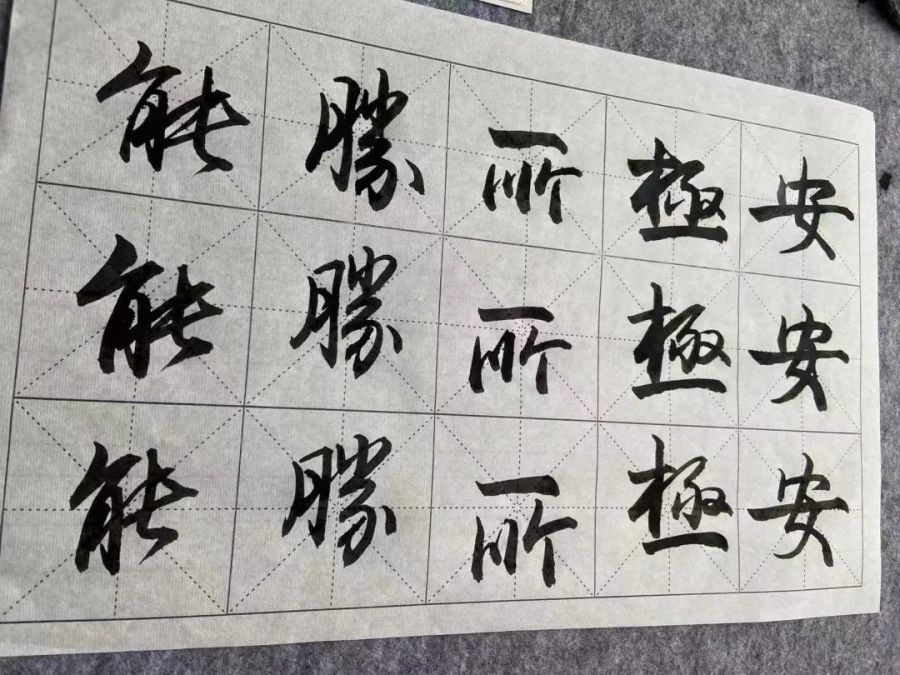 安安安
極極極
所所所
勝勝勝
能能能